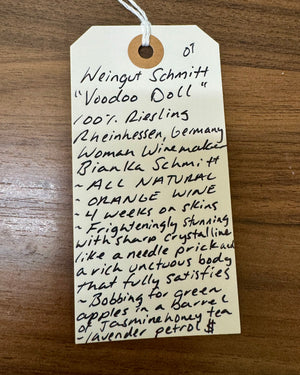 07
Weingut Schmitt
"Voodoo Doll"
100% Riesling
Rheinhessen, Germany
Woman Winemaker
Bianka Schmitt
- ALL NATURAL
- ORANGE WINE
- 4 weeks on skins
- Frighteningly stunning
with sharp crystalline
like a needle prick and
a rich unctuous body
that fully satisfies
- Bobbing for green
apples in a barrel
of Jasmine honey tea
- lavender petrol $